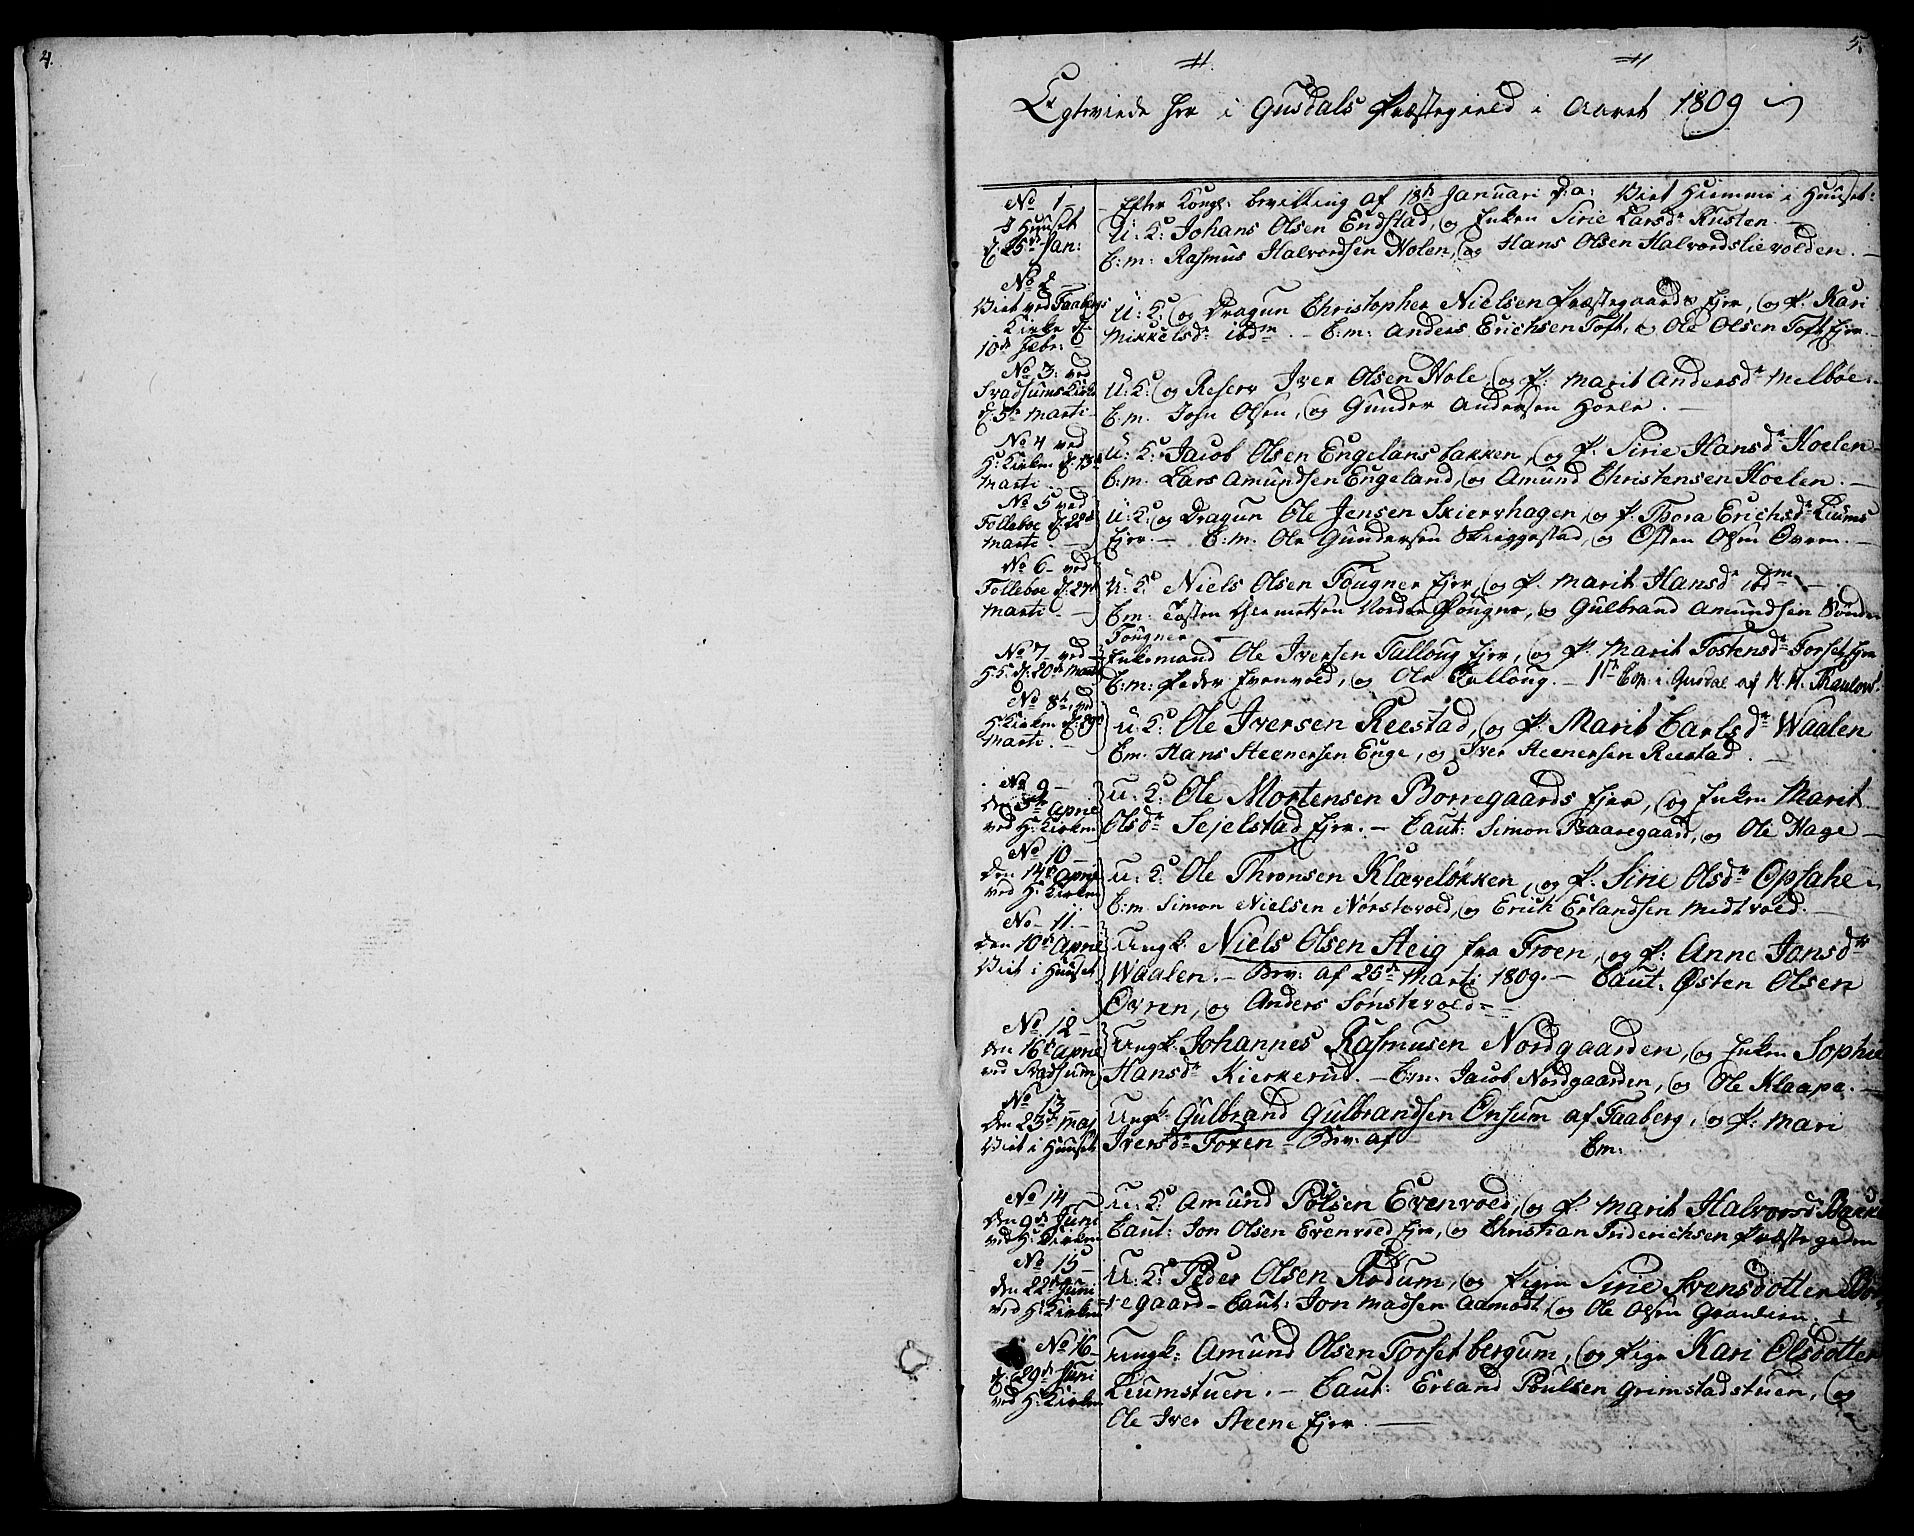 4.
5.
Egteviede her i Gusdals Præstegield i Aaret 1809
No 1
I Huuset
d. 25de Jan:
Efter Kongl: bevilling af 18de Januari d: a: Viet Hiemme i Huuset:
U: K: Johans Olsen Endstad, og Enken Sirie Larsdr Rusten. —
C: m: Rasmus Halvordsen Holen, og Hans Olsen Halvordslievolden. —
No 2
Viet ved Faabergs
Kirke d.
10de Febr:
U: K: og Dragun Christopher Nielsen Præstegaards Ejer, og P. Kari
Mikkelsdr ibdm. — C: m: Anders Erichsen Toft, og Ole Olsen Toft Ejer. —
No 3: ved
Svadsums Kirke
d. 5te Marti —
U: K: og Reserv Iver Olsen Hole, og P: Marit Andersdr Melbøe. —
C: m. John Olsen, og Gunder Andersen Horle. —
No 4 ved
H: Kirken d: 13de
Marti —
U: K: Jacob Olsen Engelansbakken, og P. Sirie Hansdr Hoelen —
C: m. Lars Amundsen Engeland, og Amund Christensen Hoelen. —
No 5 ved
Folleboe d: 22de
Marti. —
U: K: og Dragun Ole Jensen Skierrhagen, og P. Thora Erichsdr Liums
Ejer. — C: m. Ole Gundersen Skriggestad, og Østen Olsen Øvren. —
No 6 — ved
Folleboe d: 27de
Marti —
U: K: Niels Olsen Fougner Ejer, og P. Marit Hansdr ibdm —
C: m: Tosten Giermetsen Nordre Fougner, og Gulbrand Amundsen Søndre
Fougner —
No 7. ved
S: S: d: 20de Marti
Enkemand Ole Iversen Talloug Ejer, og P. Marit Tostensdr Forset Ejer
C: m: Peder Evenvold, og Ole Talloug. — 1ste Cop: i Gusdal af H. H. Thaulow.
No 8de, ved
H: Kirken d:
Marti. —
U: K: Ole Iversen Reestad, og P. Marit Carlsdr Waalen
C: m. Hans Steenersen Enge, og Iver Steenersen Reestad. —
No 9 —
den 3die April
ved H: Kirken
U: K: Ole Mortensen Borregaards Ejer, og Enken Marit
Olsdr Sejelstad Ejer. — Caut: Simon Baaregaard, og Ole Hage —
No 10 —
den 14de April
ved H: Kirken
U: K: Ole Thronsen Klæveløkken, og P. Sirie Olsdr Opsahl —
C: m. Simon Nielsen Nørstevold, og Erich Erlandsen Medtvold. —
No 11. —
den 10de April
Viet i Huuset
Ungk: Niels Olsen Steig fra Froen, og P. Anne Jansdr
Waalen. — Bev: af 25de Marti 1809. — Caut: Østen Olsen
Øvren, og Anders Sønstevold —
No 12 —
den 16de April
ved Svadsum
Ungk: Johannes Rasmusen Nordgaarden, og Enken Sophie
Hansdr Kierkerud. — C: m. Jacob Nordgaarden, og Ole Klaape. —
No 13
den 23de Maj
Viet i Huuset
Ungk: Gulbrand Gulbrandsen Onsum af Faaberg, og P. Mari
Iversdr Foxen — Bev: af
C: m:
No 14 —
den 9de Juni
ved H: Kirken
U: K: Amund Pølsen Evenvold, og P. Marit Halvorsdr Bakke
Caut: Jon Olsen Evenvold Ejer, og Christian Friderichsen Præstegaden
No 15 —
den 22de Juni
ved H: Kirken
U: K: Peder Olsen Rødum, og Pigen Sirie Svensdotter Bor
regaard — Caut: Jon Madsen Aamodt, og Ole Olsen
No 16 —
d: 29de Juni
ved H: Kirken
Ungk: Amund Olsen Forsetbergum, og Pige Kari Olsdotter
Liumstuen. — Caut: Erland Poulsen Grimstadstuen, og
Ole Iver Steene Ejer. —